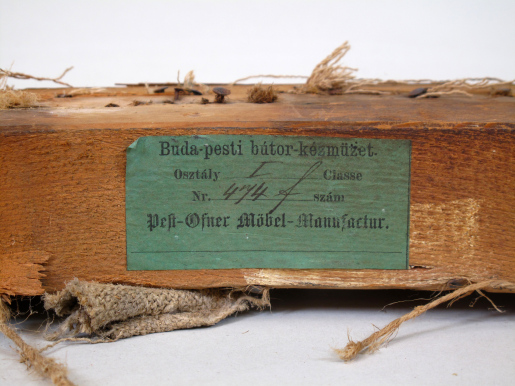 Buda-pesti bátor-kézmüzet.
Osztály I Classe
Nr. 474 f szám
Pest-Ofner Möbel-Manufactur.